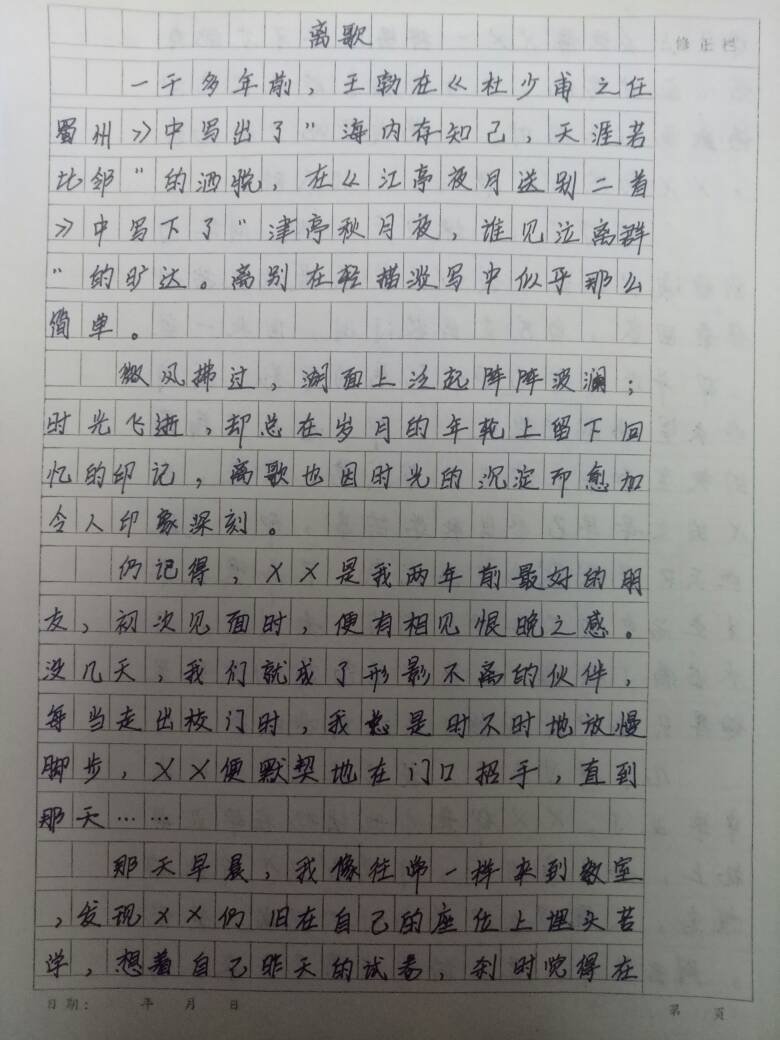 离歌
修正栏
一千多年前，王勃在《杜少甫之任
蜀州》中写出了"海内存知己，天涯若
比邻"的洒脱，在《江亭夜月送别二首
》中写下了"津亭秋月夜，谁见泣离群
"的旷达。离别在轻描淡写中似乎那么
简单。
微风拂过，湖面上泛起阵阵波澜；
时光飞逝，却总在岁月的年轮上留下回
忆的印记，离歌也因时光的沉淀而愈加
令人印象深刻。
仍记得，XX是我两年前最好的朋
友，初次见面时，便有相见恨晚之感。
没几天，我们就成了形影不离的伙伴，
每当走出校门时，我总是时不时地放慢
脚步，XX便默契地在门口招手，直到
那天……
那天早晨，我像往常一样来到教室
，发现XX仍旧在自己的座位上埋头苦
学，想着自己昨天的试卷，刹时觉得在
日期： 年 月 日
第 页